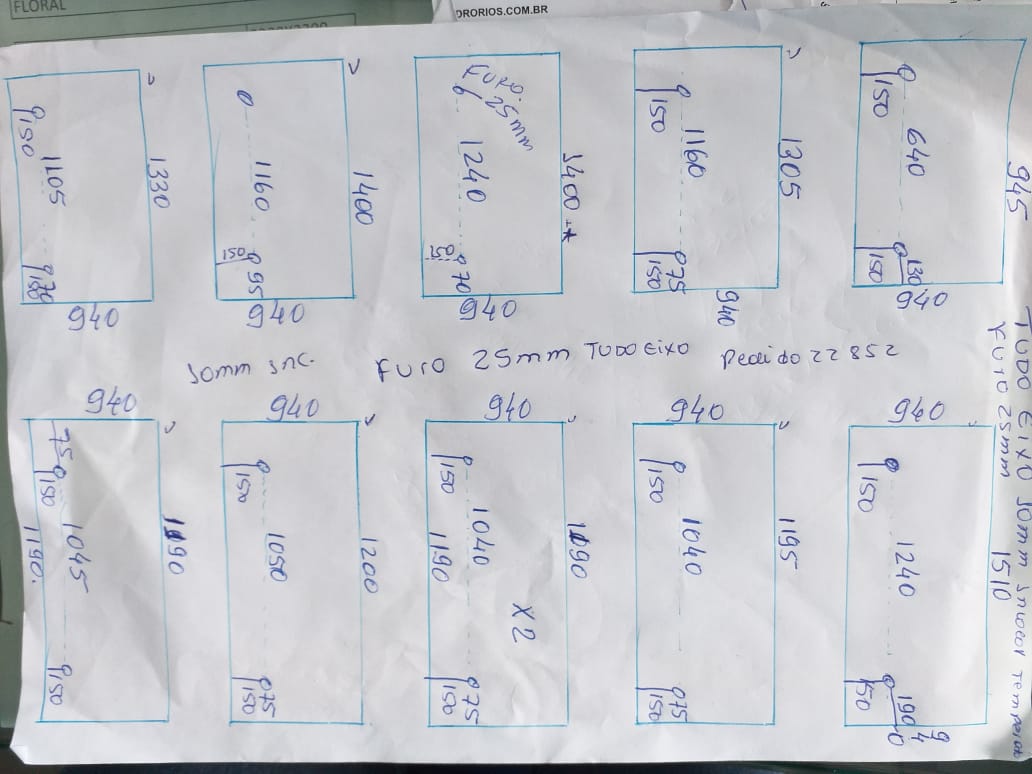 FLORAL
ORORIOS.COM.BR
TUDO EIXO 10mm incolor temperado
FURO 25mm
150
1105
1330
70
150
940
1160
1400
150
95
940
FURO.
25mm
1240
1400
150
70
940
150
1160
1305
75
150
940
150
640
945
130
150
940
10mm inc.
FURO 25mm TUDO EIXO
Pedido 22852
940
75
150
1045
1190
1190.
150
940
150
1050
1200
75
150
940
150
1040
1190
1190
X2
75
150
940
150
1040
1195
75
150
940
150
1240
1510
190
150
940